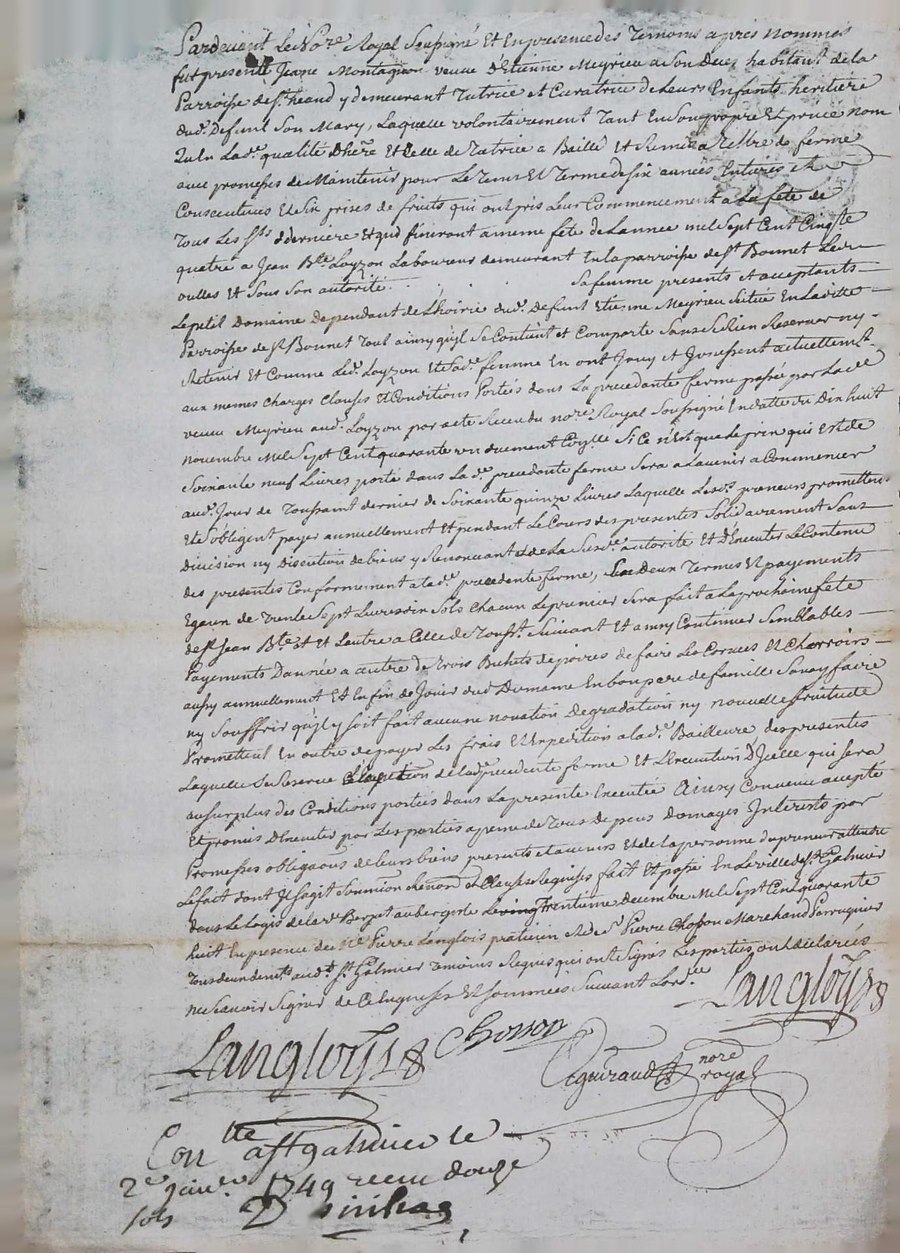 Pardevant Le No.re Royal Soussigné Et En presence des Temoins apres nommés
fut presente Jeane Montagnon veuve D'Etienne Meyrieu a Son Deces habitant de la
Parroisse de St heand y demeurant Tutrice et Curatrice de Leurs Enfants heritiere
dud. Defunt Son Mary, Laquelle volontairement Tant En Son propre Et privé nom
qu'En Lad.e qualité D'here Et Celle de Tutrice a Baillé Et Remis a Tittre de ferme
avec promesses de Maintenir pour Le Tems Et Terme de Six années Entieres Et
Consecutives Et Six prises de fruits qui ont pris Leur Commencement a La fête de
Tous Les Sts derniere Et qui finiront a meme fête de Lannee mil Sept Cent Cinqte
quatre a Jean Bte Loyzon Laboureur demeurant En la parroisse de St Bonnet Les
oulles Et Sous Son autorité sa femme presents et acceptants
Le petit Domaine dependant de L'hoirie dud. Defunt Etienne Meyrieu Scitué En Laditte
Parroisse de St Bonnet Tout ainsy qu'il Se Contient et Comporte Sans Se Rien Reserver ny
Retenir Et Comme Led. Loyzon Et Sad. femme En ont Jouy et Jouissent actuellemt
aux memes Charges Clauses Et Conditions Portés dans La precedante ferme passée par Lade
veuve Meyrieu aud. Loyzon par acte Receu du nore Royal Soussigné En datte du Dixhuit
novembre Mil Sept Cent quarante un duement Si Ce n'Est que Le prix qui Est de
Soixante neuf Livres porté dans La d.e precedante ferme Sera a Lavenir a Commencer
aud. Jour de Toussaint dernier de Soixante quinze Livres Laquelle Lesd.s preneurs promettent
Et S'obligent payer annuellement Et pendant Le Cours des presentes Solidairement Sans
division ny Discution de biens y Renonceant et de La Susd.e autorité Et D'Executer Le Contenu
des presentes Conformement a la d.e precedente ferme, En Deux Termes Et payements
Egaux de Trente Sept Livres dix Sols Chacun Le premier Sera fait a La prochaine fete
de St Jean Bte Et Lautre a Celle de Toussts Suivant Et ainsy Continuer Semblables
Payements D'année a autre de Trois Bichets de poires de faire Les Corvées Et Charroirs
aussy annuellement Et Enfin de Jouir dud. Domaine En bon pere de famille Sans y faire
ny Souffrir qu'il y Soit fait aucune novation Degradation ny nouvelle Servitude
Promettent En outre de payer Les frais Et Expedition a lad. Bailleure des presentes
Laquelle Se Reserve de lad. precedente ferme Et L'Execution D'Jcelle qui Sera
au Surplus des Conditions portées dans La presente Executée Ainsy Convenu accepté
Et promis D'Executer par Les parties a peine de Tous Depens Domages Interests par
Promesses obligaons de Leurs biens presents Et avenirs Et de la personne du preneur attendu
Le fait dont Jl S'agit Soumission Renons et Clauses Requises fait Et passé En La ville de St Galmier
dans Le Logis de La ve aubergiste Le Trentieme Decembre Mil Sept Cent quarante
huit En presence de Me Pierre Langlois praticien Et de Sr Pierre Chosson Marchand Perruquier
Tous deux demts aud. St Galmier Temoins Requis qui ont Signés Les parties ont declarées
ne Scavoir Signer de Ce Enquises Et Sommées Suivant Lordce
Langloys
Langloys Chosson
Eguiraud nore royal
Conlle a St galmier le
2e janver 1749 receu douze
sols